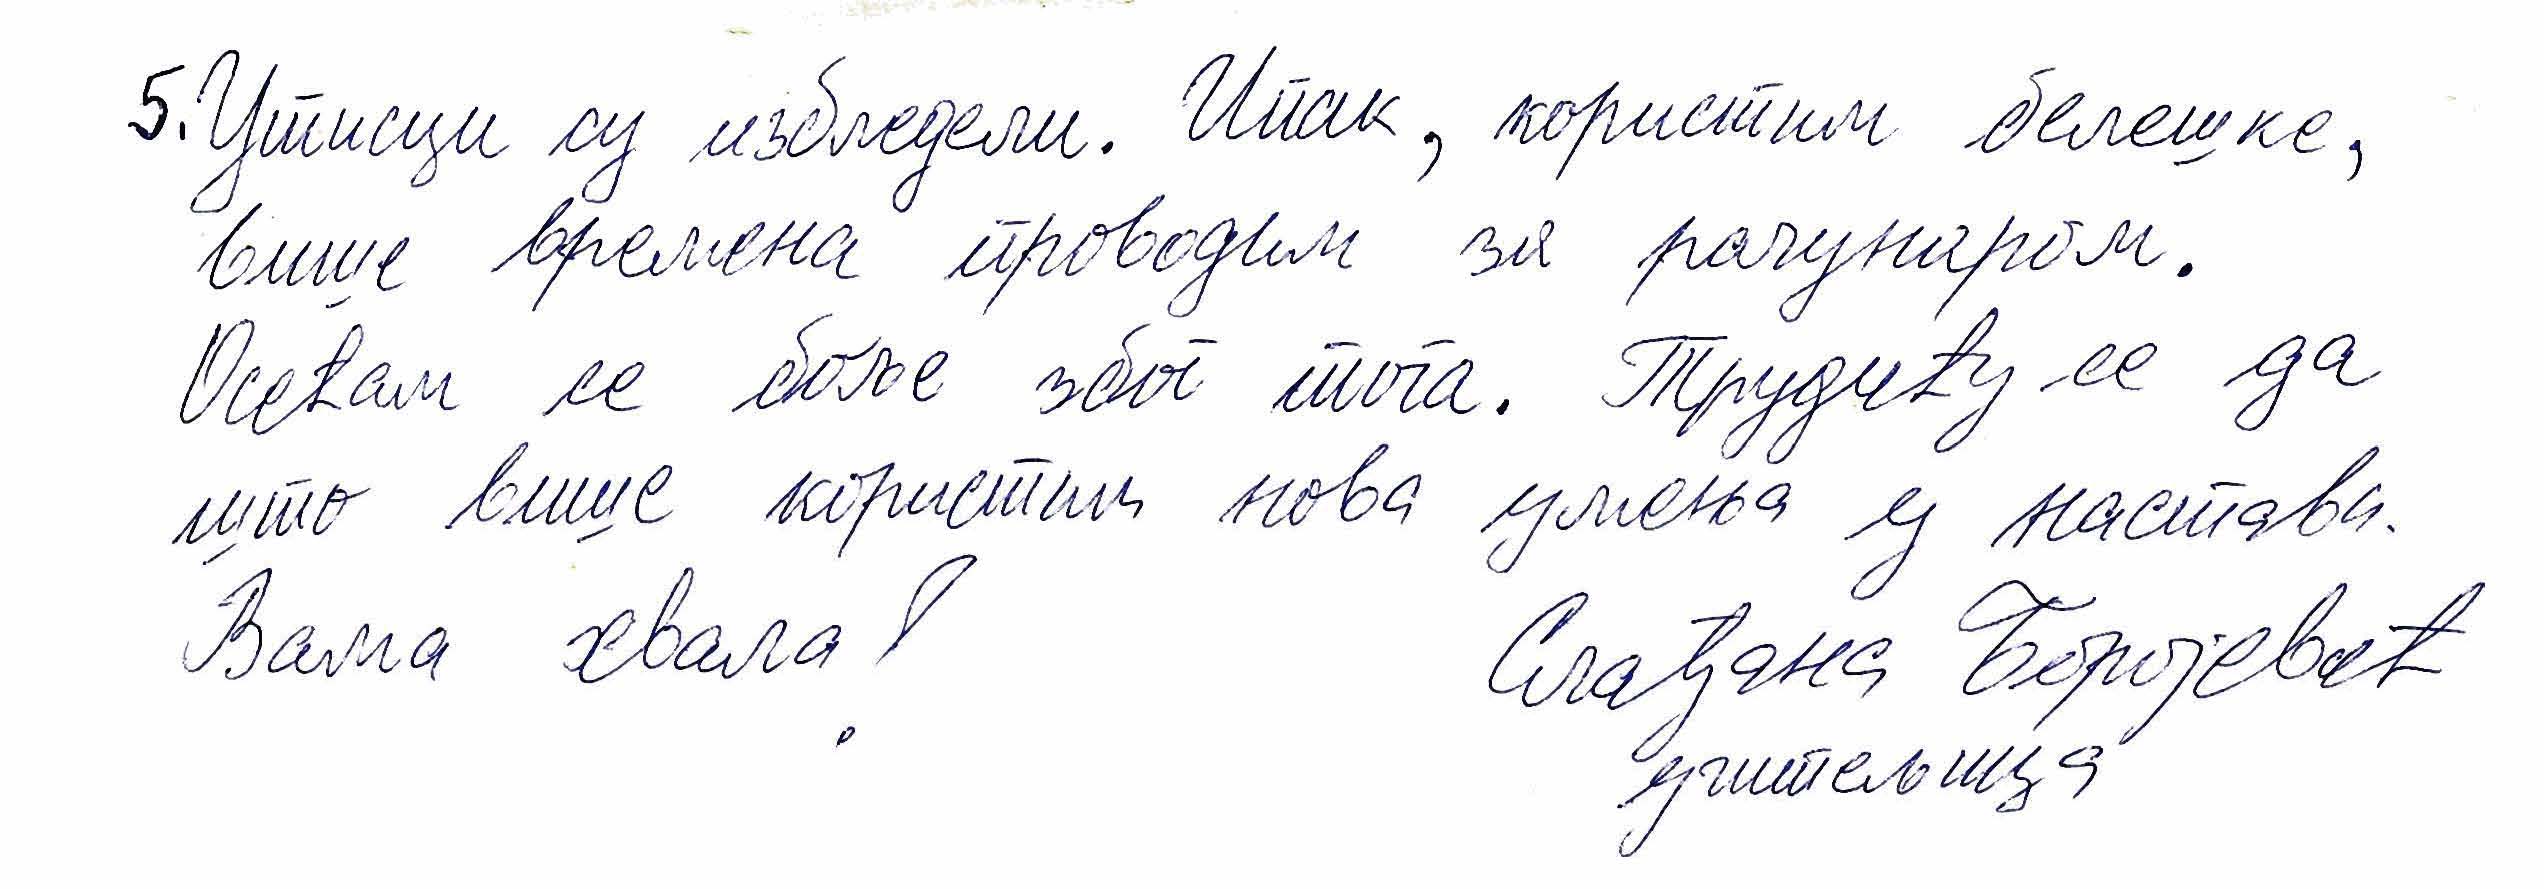 5. Утисци су избледели. Ипак, користим белешке,
више времена проводим за рачунаром.
Осећам се боље због тога. Трудићу се да
што више користим нова умења у настави.
Вама хвала!
Слађана Боројевић
учитељица